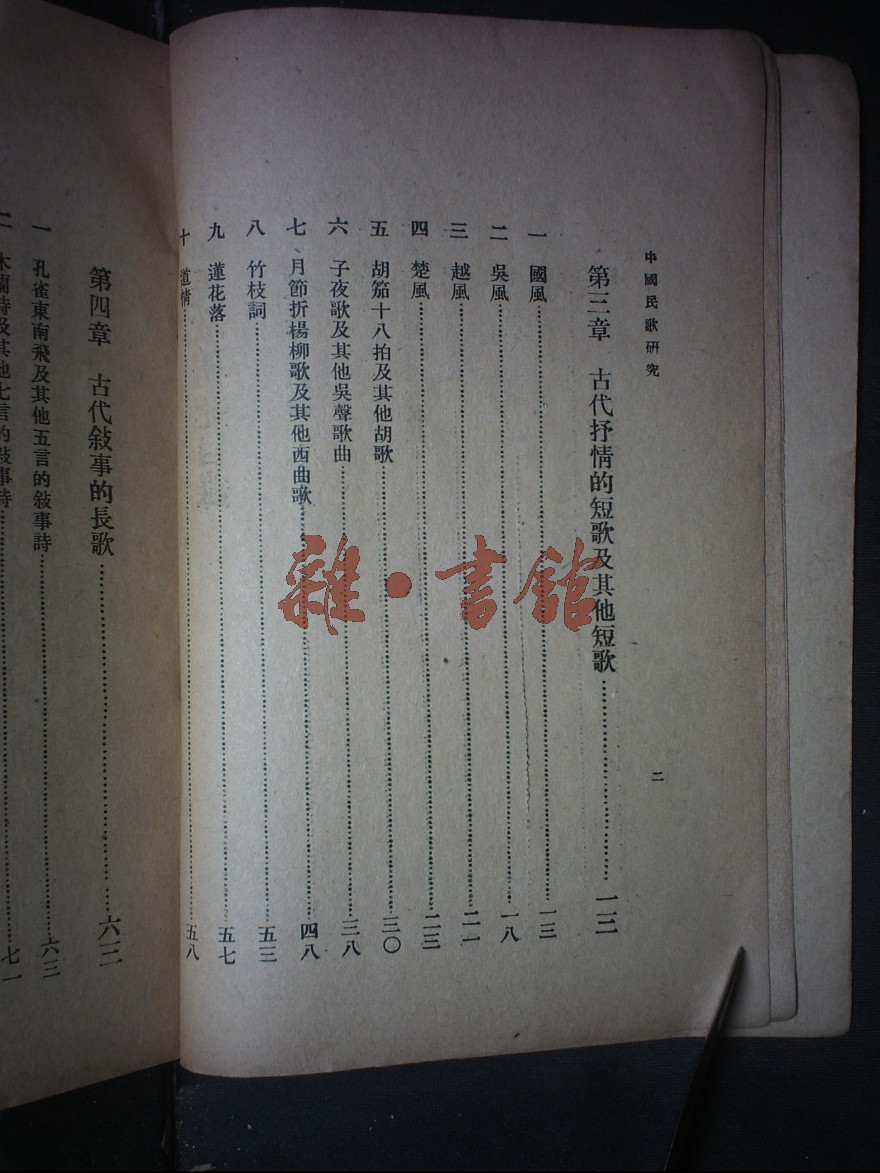 中國民歌研究
二
第三章 古代抒情的短歌及其他短歌……一三
一 國風……一三
二 吳風……一八
三 越風……二一
四 楚風……二三
五 胡笳十八拍及其他胡歌……三〇
六 子夜歌及其他吳聲歌曲……三八
七 月節折楊柳歌及其他西曲歌……四八
八 竹枝詞……五三
九 蓮花落……五七
十 道情……五八
第四章 古代敍事的長歌……六三
一 孔雀東南飛及其他五言的敍事詩……六三
二 木蘭詩及其他七言的敍事詩……七一
雜·書館